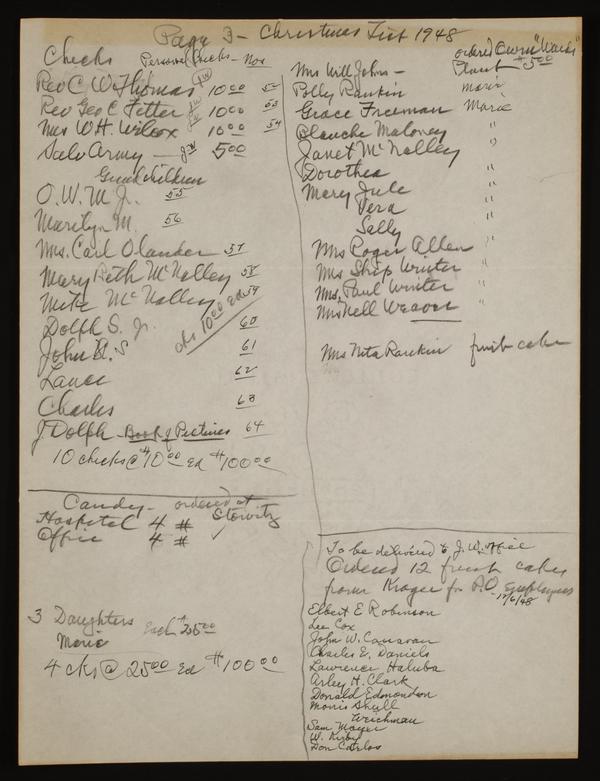 Page 3 - Christmas List 1948
Checks Personal Checks - Nos
Rev C. W. Thomas JW 10 00 52
Rev Geo C. Fetter JW 10 00 53
Mrs W. H. Wilcox JW 10 00 54
Salv Army - JW 5 00
Grandchildren
O. W. M Jr. 55
Marilyn M. 56
Mrs. Carl Olander 57
Mary Beth McNalley 58
Mike McNalley 59
cks 10 00 ea
Dolph S. Jr. 60
John R. S 61
Lance 62
Charles 63
J. Dolph - Book of Pictures 64
10 checks @ $10 00 ea $100 00
Candy - ordered at
Hospital 4 # Stowitz
Office 4 #
3 Daughters Each $25 00
Marie
4 cks @ 25 00 ea $100 00
ordered "Marie's"
Mrs Will Johns - Plant $5.00
Polly Rankin Marie
Grace Freeman Marie
Blanche Maloney "
Janet McNalley "
Dorothea "
Mary Jule "
Vera "
Sally "
Mrs Roger Allen "
Mrs Skip Winter "
Mrs. Paul Winter "
Mrs Nell Weaver "
Mrs Neta Rankin fruit cake
To be delivered to J. W. office
Ordered 12 fruit cakes
from Kroger for P.O. Employees
12/6/48
Elbert E Robinson
Lee Cox
John W. Canavan
Charles E. Daniels
Lawrence Haluba
Arley H. Clark
Donald Edmondson
Morris Skull
Weichman
Sam Mayer
W. Kirby
Don Carlos